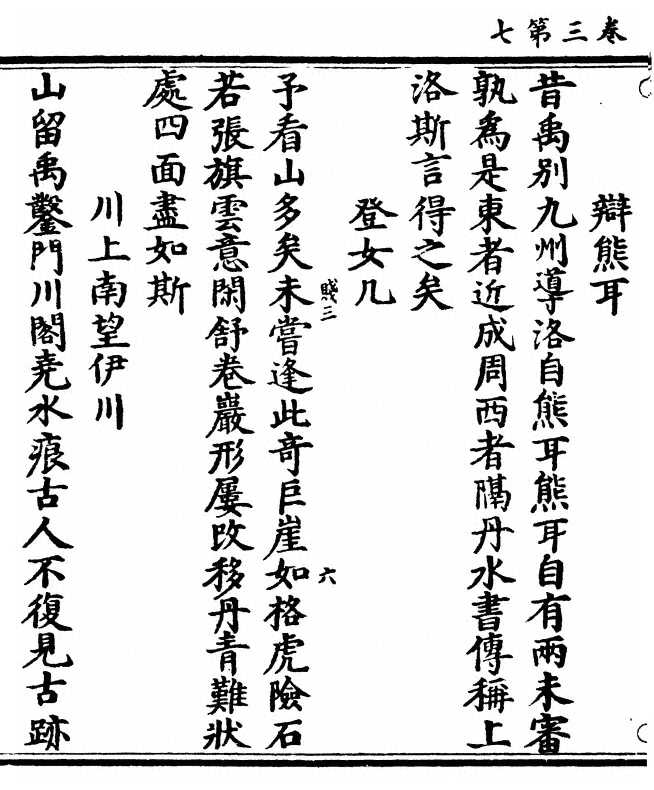 卷三第七
辯熊耳
昔禹别九州導洛自熊耳熊耳自有兩未審
孰爲是東者近成周西者隔丹水書傳稱上
洛斯言得之矣
登女几
賤三
六
予看山多矣未嘗逢此奇巨崖如格虎險石
若張旗雲意閑舒卷巖形屢改移丹青難狀
處四面盡如斯
川上南望伊川
山留禹鑿門川閣堯水痕古人不復見古跡